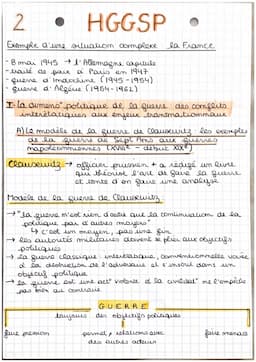 2 HGGSP
Exemple d'une situation complexe la France
- 8 mai 1945 → l'Allemagne capitule
- traité de paix à Paris en 1947
- guerre d'Indochine (1945-1954)
- guerre d'Algérie (1954-1962)
I- la dimens° politique de la guerre des conflits
interétatiques aux enjeux transnationaux
A) Le modèle de la guerre de Clausewitz les exemples
de la guerre de Sept Ans aux guerres
napoléoniennes (XVIIIe - début XIXe)
Clausewitz → officier prussien + a rédigé un livre
qui théorise l'art de faire la guerre
et tente d'en faire une analyse
Modèle de la guerre de Clausewitz
→ "la guerre n'est rien d'autre que la continuation de la
politique par d'autres moyens"
↳ c'est un moyen, pas une fin
→ les autorités militaires doivent se plier aux objectifs
politiques
→ la guerre classique interétatique, conventionnelle vouée
à la destruction de l'adversaire et s'inscrit dans un
objectif politique
→ la guerre est une act° violente et la civilité ne l'empêche
pas bien au contraire
GUERRE
toujours des objectifs politiques
faire pression
permet relations avec
des autres acteurs
faire menace